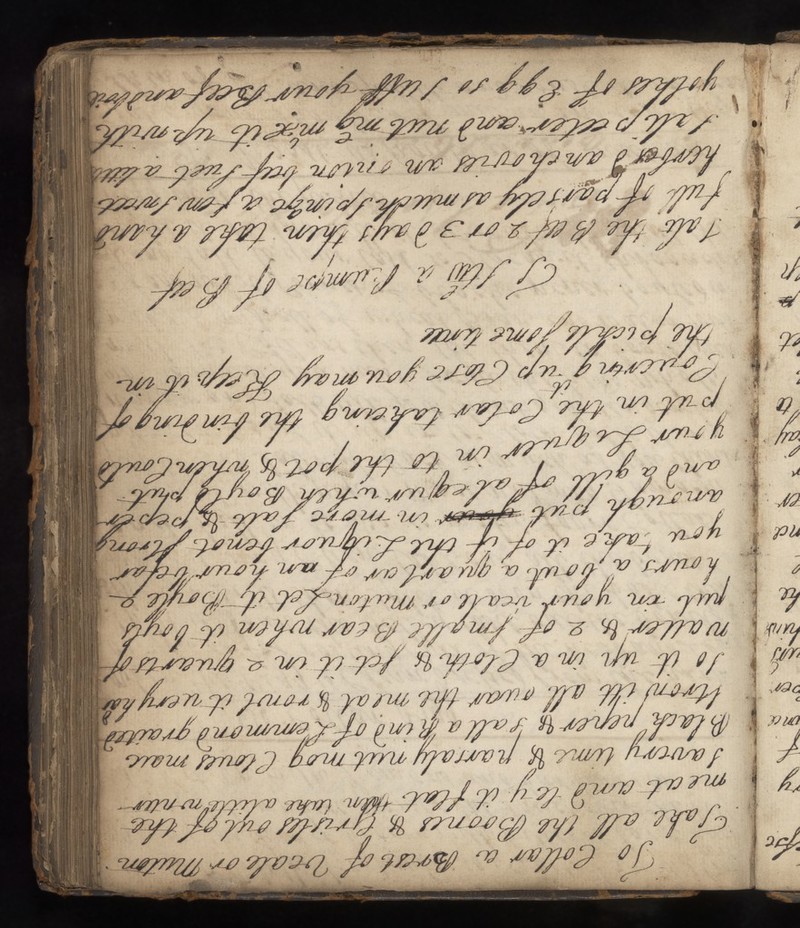 To Collar a Brest of Veale or Muton
Take all the Boones & Gristles out of the
meat and ley it flat then take a litle winter
savery time & parsaly nutmog Cloves mace
Black peper & sall a Rind of Lemmond graited
strow itt all ovar the meat & rowl it very ha
so it up in a Cloth & set it in 2 quarts of
watter & 2 of smalle Bear when it boyls
put in your veale or muton Let it Boyle 2
hours a bout a quartar of an hour befar
you take it of if the Liquor be not strong
anough put in more salt & peper
and a gill of alequr when Boyld put
your Liquer in to the pot & when Could
put in the Colar takeing the binding of
it
Covering up Close you may Keep it in
the pickle some time
To stew a Rumpe of Beef
Sale the Beef 2 or 3 days then take a hand
full of parsely as much spinge a few sweet
herbs anchovies an onion beef suet a litle
salt peeter and nutmeg mix it up with
yolkes of Egg so stuff your Beef and boil